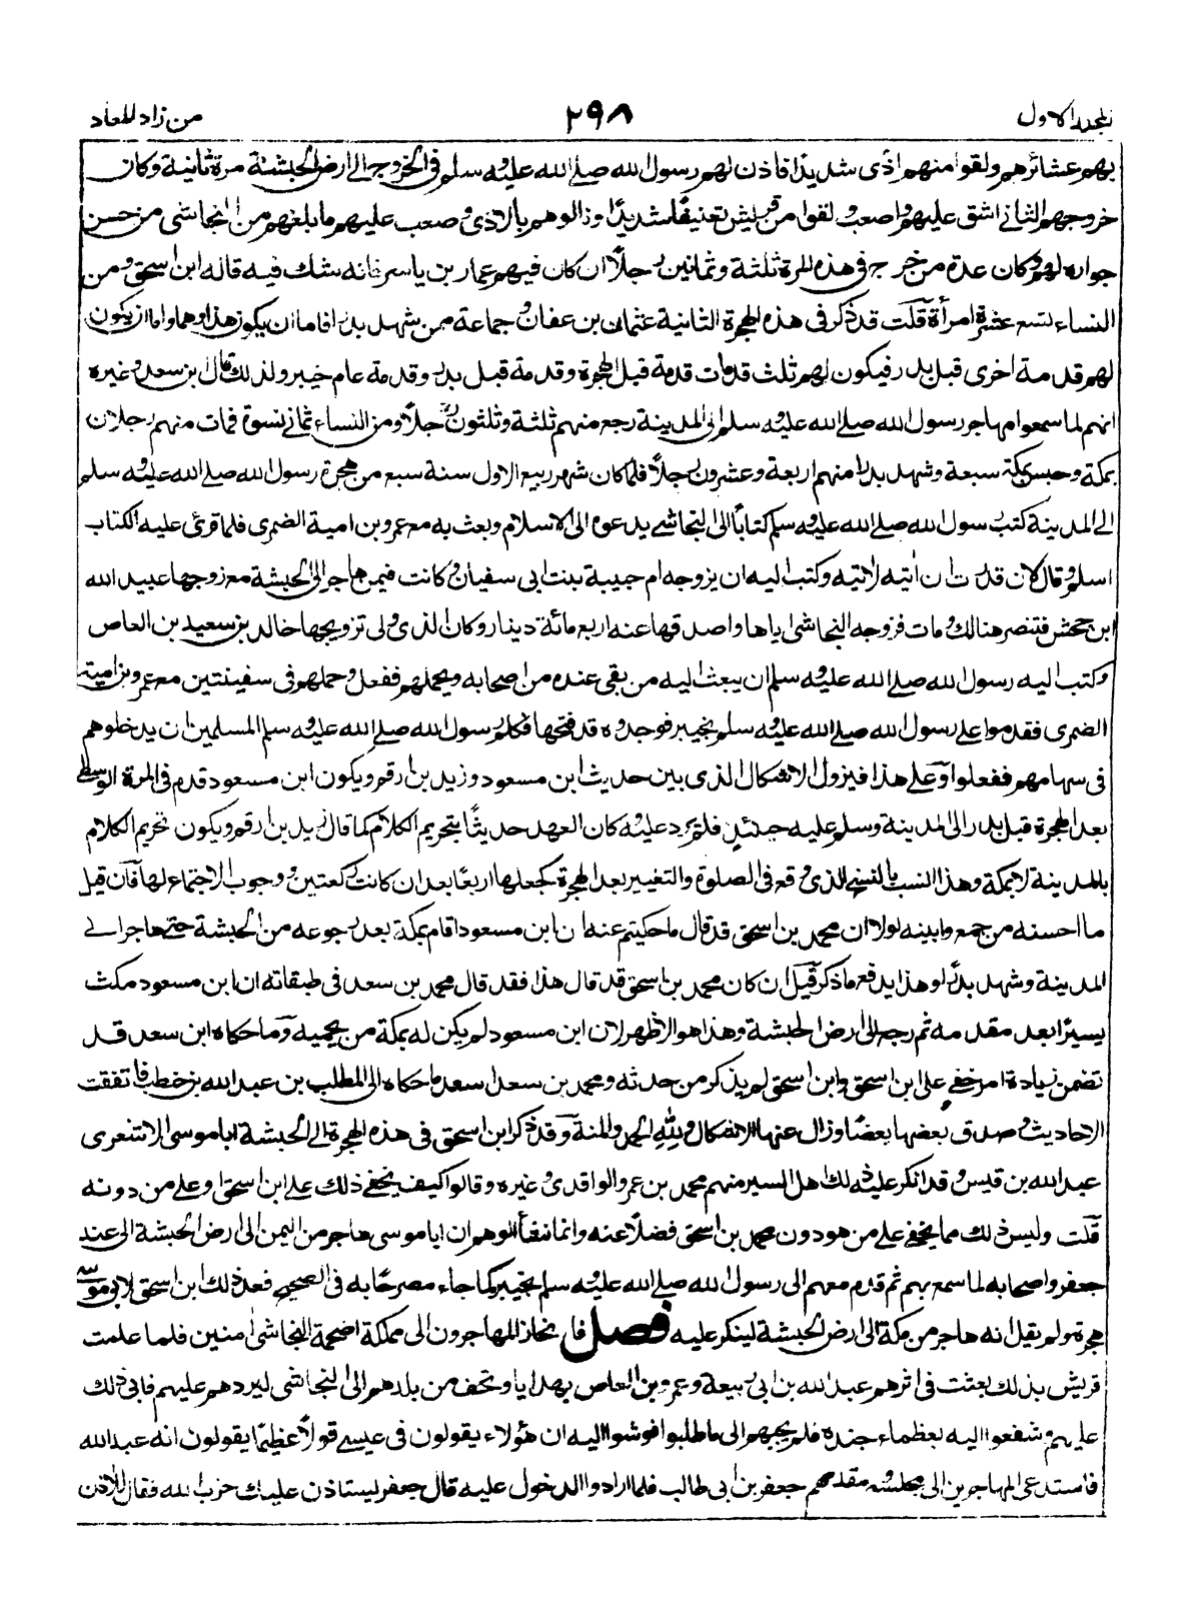 المجلد الاول
٢٩٨
من زاد المعاد
بهم عشائرهم ولقوا منهم اذى شديدا فاذن لهم رسول الله صلى الله عليه وسلم فى الخروج الى ارض الحبشة مرة ثانية وكان
خروجهم الثانى اشق عليهم واصعب ولقوا من قريش تعنيفا شديدا ونالوهم بالاذى وصعب عليهم ما بلغهم من النجاشى من حسن
جواره لهم وكان عدة من خرج فى هذه المرة ثلثة وثمانين رجلا ان كان فيهم عمار بن ياسر فانه شك فيه قاله ابن اسحق ومن
النساء تسع عشرة امرأة قلت قد ذكر فى هذه الهجرة الثانية عثمان بن عفان وجماعة ممن شهد بدرا فاما ان يكون هذا وهما واما ان يكون
لهم قدمة اخرى قبل بدر فيكون لهم ثلث قدمات قدمة قبل الهجرة وقدمة قبل بدر وقدمة عام خيبر ولذلك قال ابن سعد وغيره
انهم لما سمعوا مهاجر رسول الله صلى الله عليه وسلم الى المدينة رجع منهم ثلثة وثلثون رجلا ومن النساء ثمانى نسوة فمات منهم رجلان
بمكة وحبس بمكة سبعة وشهد بدرا منهم اربعة وعشرون رجلا فلما كان شهر ربيع الاول سنة سبع من هجرة رسول الله صلى الله عليه وسلم
الى المدينة كتب رسول الله صلى الله عليه وسلم كتابا الى النجاشى يدعوه الى الاسلام وبعث به مع عمرو بن امية الضمرى فلما قرئ عليه الكتاب
اسلم وقال لان قدرت ان اتيه لاتيته وكتب اليه ان يزوجه ام حبيبة بنت ابى سفيان وكانت فيمن هاجر الى الحبشة مع زوجها عبيد الله
ابن جحش فتنصر هنالك ومات فزوجه النجاشى اياها واصدقها عنه اربع مائة دينار وكان الذى ولى تزويجها خالد بن سعيد بن العاص
وكتب اليه رسول الله صلى الله عليه وسلم ان يبعث اليه من بقى عنده من اصحابه ويحملهم ففعل وحملهم فى سفينتين مع عمرو بن امية
الضمرى فقدموا على رسول الله صلى الله عليه وسلم بخيبر فوجدوه قد فتحها فكلم رسول الله صلى الله عليه وسلم المسلمين ان يدخلوهم
فى سهامهم ففعلوا وعلى هذا فيزول الاشكال الذى بين حديث ابن مسعود وزيد بن ارقم ويكون ابن مسعود قدم فى المرة الوسطى
بعد الهجرة قبل بدر الى المدينة وسلم عليه حينئذ فلم يرد عليه وكان العهد حديثا بتحريم الكلام كما قال زيد بن ارقم ويكون تحريم الكلام
بالمدينة لا بمكة وهذا انسب بالنسخ الذى وقع فى الصلوة والتغيير بعد الهجرة كجعلها اربعا بعد ان كانت ركعتين ووجوب الاجتماع لها فان قيل
ما احسنه من جمع وابينه لولا ان محمد بن اسحق قد قال ما حكيتم عنه ان ابن مسعود اقام بمكة بعد رجوعه من الحبشة حتى هاجر الى
المدينة وشهد بدرا وهذا يدفع ما ذكر قيل ان كان محمد بن اسحق قد قال هذا فقد قال محمد بن سعد فى طبقاته ان ابن مسعود مكث
يسيرا بعد مقدمه ثم رجع الى ارض الحبشة وهذا هو الاظهر لان ابن مسعود لم يكن له بمكة من يحميه وما حكاه ابن سعد قد
تضمن زيادة امر خفى على ابن اسحق وابن اسحق لم يذكر من حدثه ومحمد بن سعد اسند ما حكاه الى المطلب بن عبد الله بن حنطب فاتفقت
الاحاديث وصدق بعضها بعضا وزال عنها الاشكال ولله الحمد والمنة وقد ذكر ابن اسحق فى هذه الهجرة الى الحبشة ابا موسى الاشعرى
عبد الله بن قيس وقد انكر عليه ذلك اهل السير منهم محمد بن عمر الواقدى وغيره وقالوا كيف يخفى ذلك على ابن اسحق او على من دونه
قلت وليس ذلك مما يخفى على من هو دون محمد بن اسحق فضلا عنه وانما نشأ الوهم ان ابا موسى هاجر من اليمن الى ارض الحبشة الى عند
جعفر واصحابه لما سمع بهم ثم قدم معهم الى رسول الله صلى الله عليه وسلم بخيبر كما جاء مصرحا به فى الصحيح فعد ذلك ابن اسحق لابى موسى
هجرة ولم يقل انه هاجر من مكة الى ارض الحبشة لينكر عليه فصل فانحاز المهاجرون الى مملكة اصحمة النجاشى امنين فلما علمت
قريش بذلك بعثت فى اثرهم عبد الله بن ابى ربيعة وعمرو بن العاص بهدايا وتحف من بلدهم الى النجاشى ليردهم عليهم فابى ذلك
عليهم وشفعوا اليه بعظماء جنده فلم يجبهم الى ما طلبوا فوشوا اليه ان هؤلاء يقولون فى عيسى قولا عظيما يقولون انه عبد الله
فاستدعى المهاجرين الى مجلسه ومقدمهم جعفر بن ابى طالب فلما ارادوا الدخول عليه قال جعفر يستاذن عليك حزب الله فقال للاذن